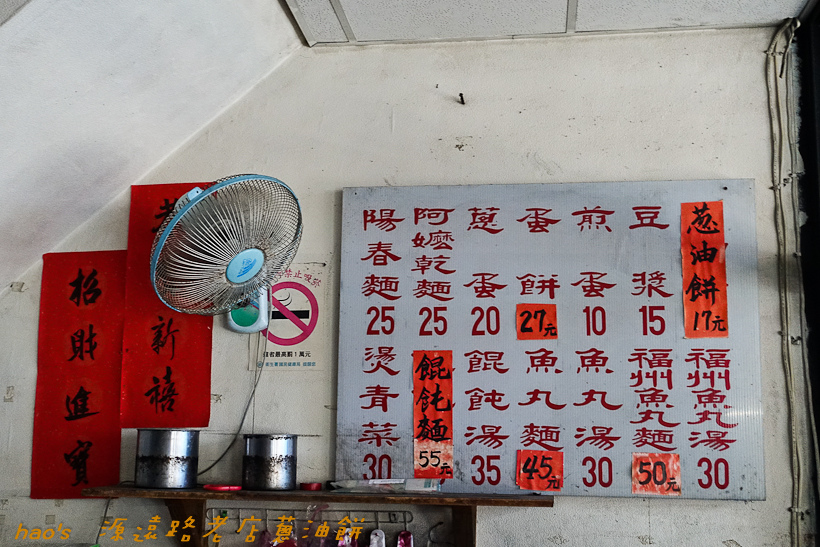 葱油餅17元
豆漿15
煎蛋10
蛋餅27元
蔥蛋20
阿嬤乾麵25
陽春麵25
福州魚丸湯30
福州魚丸麵50元
魚丸湯30
魚丸麵45元
餛飩湯35
餛飩麵55元
燙青菜30
新禧
招財進寶
禁止吸菸
hao's 源遠路老店蔥油餅